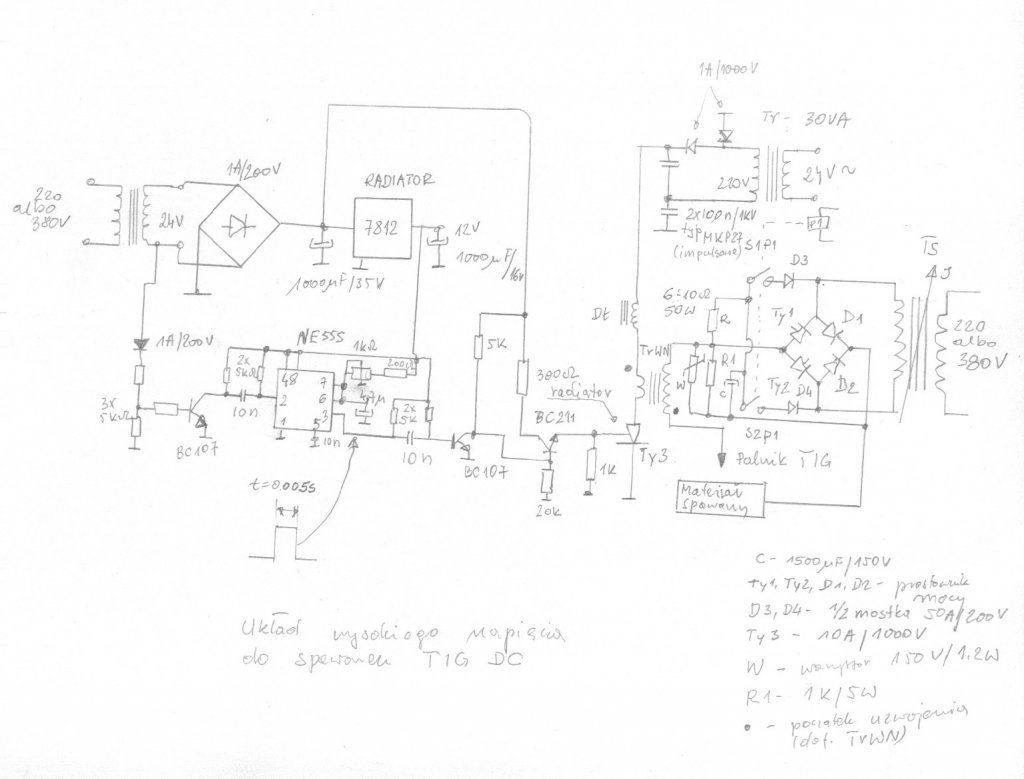 1A/1000V
Tr - 30VA
220V
24V ~
2x100n/1kV
typ MKP27
(impulsowe)
P1
S1P1
1A/200V
RADIATOR
220
albo
380V
24V
7812
12V
1000μF/16V
1000μF/35V
D3
TS
J
6÷10Ω
50W
R
Ty1
D1
Dł
220
albo
380V
NE555
1kΩ
5K
1A/200V
2x
5kΩ
48
7
200Ω
TrWN
W
R1
C
Ty2
D4
D2
300Ω
radiator
2
6
47μ
2x
5K
3x
5kΩ
10n
3
BC211
1
5
10n
S2P1
BC107
10n
BC107
1K
Ty3
Palnik TIG
20k
Materiał
spawany
t=0.005s
C - 1500μF/150V
Ty1, Ty2, D1, D2 - prostownik
mocy
D3, D4 - 1/2 mostka 50A/200V
Ty3 - 10A/1000V
W - warystor 150V/1.2W
R1 - 1K/5W
• - początek uzwojenia
(dot. TrWN)
Układ wysokiego napięcia
do spawarek TIG DC